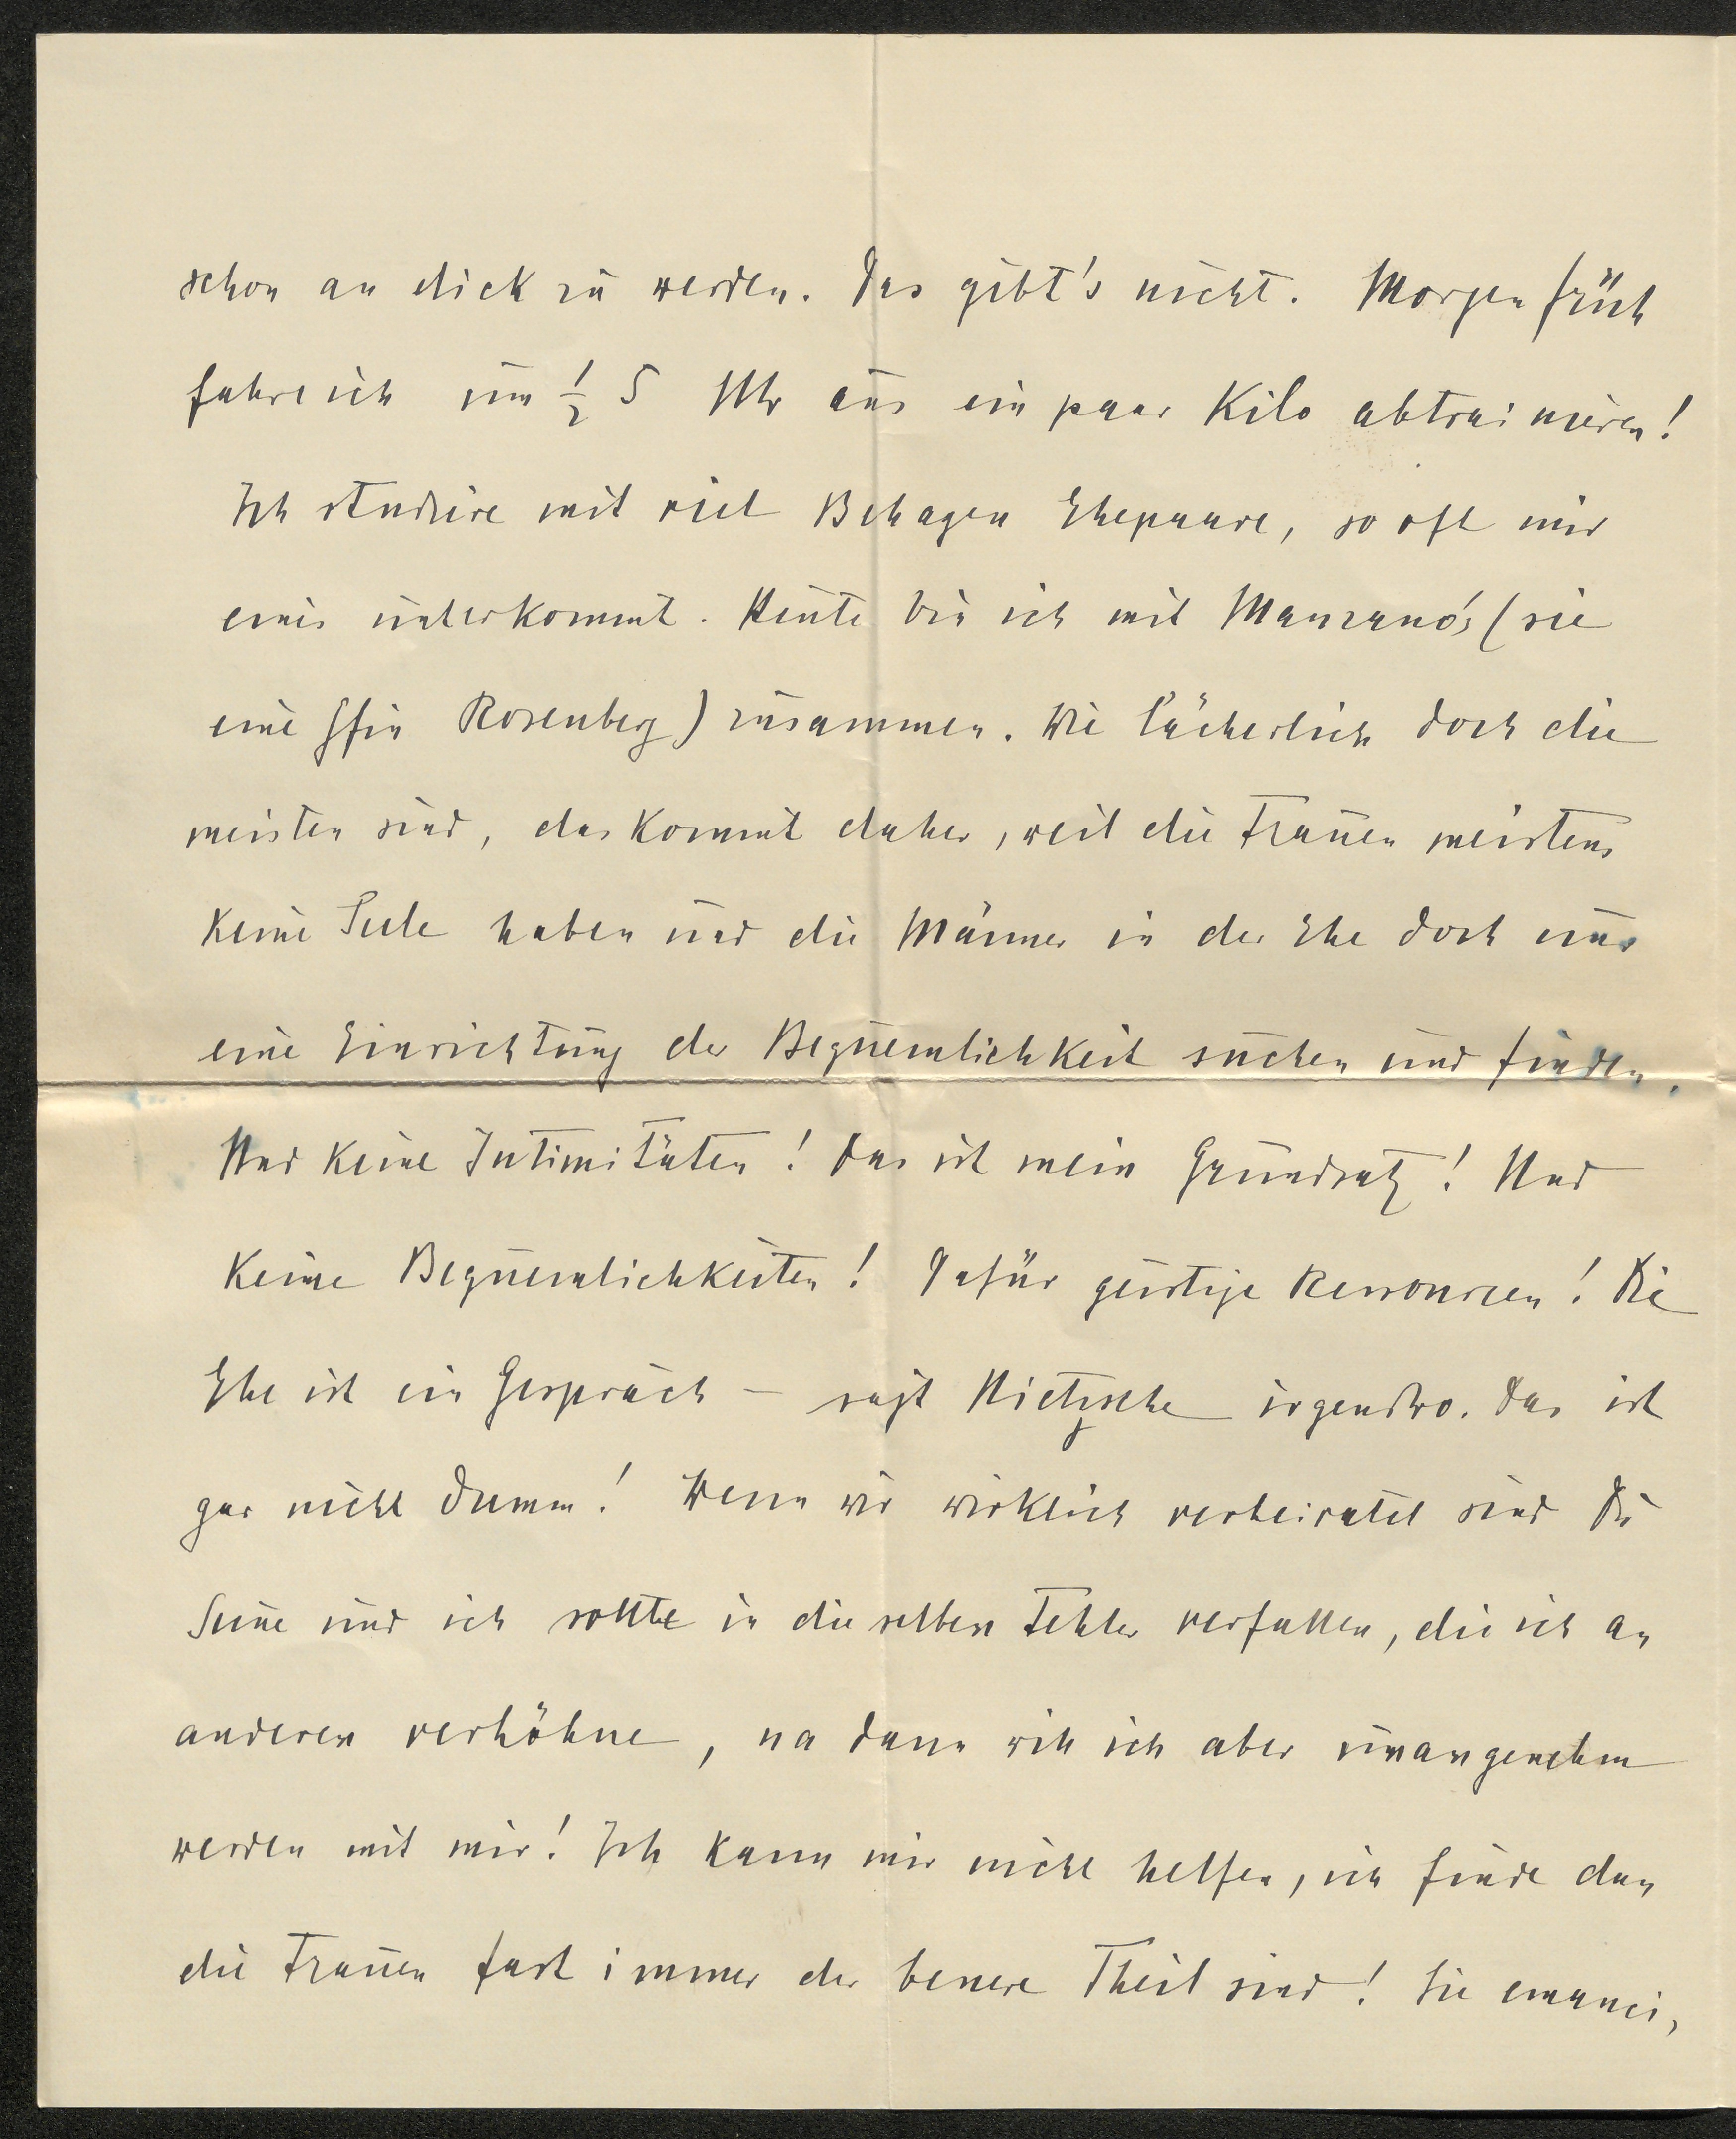 schon an dick zu werden. Das gibt's nicht. Morgen früh
fahre ich um ½ 5 Uhr aus ein paar Kilo abtrainieren!
Ich studiere mit viel Behagen Ehepaare, so oft mir
eines unterkommt. Heute bin ich mit Manzano's (sie
eine Gfin Rosenberg) zusammen. Wie lächerlich doch die
meisten sind, das kommt daher, weil die Frauen meistens
keine Seele haben und die Männer in der Ehe doch nur
eine Einrichtung der Bequemlichkeit suchen und finden.
Nur keine Intimitäten! Das ist mein Grundsatz! Nur
keine Bequemlichkeiten! Dafür geistige Ressourcen! Die
Ehe ist ein Gespräch – sagt Nietzsche irgendwo. Das ist
gar nicht dumm! Wenn wir wirklich verheiratet sind Du
und ich sollte in dieselben Fehler verfallen, die ich an
anderen verhöhne, na dann will ich aber unangenehm
werden mit mir! Ich kann mir nicht helfen, ich finde dass
die Frauen fast immer der bessere Theil sind! Sie emanci,